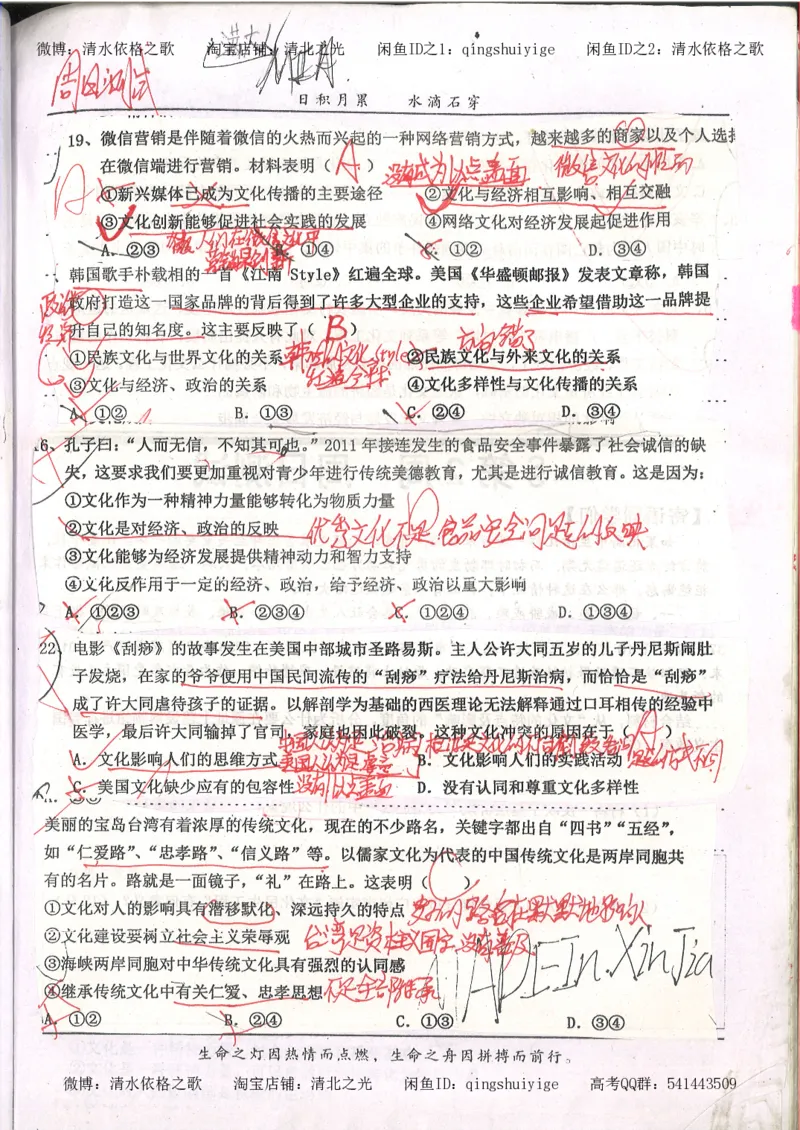 微博：清水依格之歌 淘宝店铺：清北之光 闲鱼ID之1：qingshuiyige 闲鱼ID之2：清水依格之歌
周日测试
日积月累 水滴石穿
19、微信营销是伴随着微信的火热而兴起的一种网络营销方式，越来越多的商家以及个人选择
在微信端进行营销。材料表明（ A ）
没有成为 以点盖面
①新兴媒体已成为文化传播的主要途径 ②文化与经济相互影响、相互交融
③文化创新能够促进社会实践的发展 ④网络文化对经济发展起促进作用
A. ②③ B. ①④ C. ①② D. ③④
韩国歌手朴载相的一首《江南 Style》红遍全球。美国《华盛顿邮报》发表文章称，韩国
政府打造这一国家品牌的背后得到了许多大型企业的支持，这些企业希望借助这一品牌提
升自己的知名度。这主要反映了（ B ）
①民族文化与世界文化的关系 ②民族文化与外来文化的关系
③文化与经济、政治的关系 ④文化多样性与文化传播的关系
A. ①② B. ①③ C. ②④ D. ③④
6、孔子曰：“人而无信，不知其可也。”2011年接连发生的食品安全事件暴露了社会诚信的缺
失，这要求我们要更加重视对青少年进行传统美德教育，尤其是进行诚信教育。这是因为：
①文化作为一种精神力量能够转化为物质力量
②文化是对经济、政治的反映 优秀文化不是食品安全问题的反映
③文化能够为经济发展提供精神动力和智力支持
④文化反作用于一定的经济、政治，给予经济、政治以重大影响
A. ①②③ B. ②③④ C. ①②④ D. ①③④
22、电影《刮痧》的故事发生在美国中部城市圣路易斯。主人公许大同五岁的儿子丹尼斯闹肚
子发烧，在家的爷爷便用中国民间流传的“刮痧”疗法给丹尼斯治病，而恰恰是“刮痧”
成了许大同虐待孩子的证据。以解剖学为基础的西医理论无法解释通过口耳相传的经验中
医学，最后许大同输掉了官司，家庭也因此破裂。这种文化冲突的原因在于（ A ）
A. 文化影响人们的思维方式 B. 文化影响人们的实践活动
C. 美国文化缺少应有的包容性 D. 没有认同和尊重文化多样性
没有 以点盖面
美丽的宝岛台湾有着浓厚的传统文化，现在的不少路名，关键字都出自“四书”“五经”，
如“仁爱路”、“忠孝路”、“信义路”等。以儒家文化为代表的中国传统文化是两岸同胞共
有的名片。路就是一面镜子，“礼”在路上。这表明（ C ）
①文化对人的影响具有潜移默化、深远持久的特点
②文化建设要树立社会主义荣辱观 台湾是资本主义国家 没有普及
③海峡两岸同胞对中华传统文化具有强烈的认同感
④继承传统文化中有关仁爱、忠孝思想 不是全部继承
MADEIn.XinJia
A. ①② B. ②④ C. ①③ D. ③④
生命之灯因热情而点燃，生命之舟因拼搏而前行。
微博：清水依格之歌 淘宝店铺：清北之光 闲鱼ID：qingshuiyige 高考QQ群：541443509